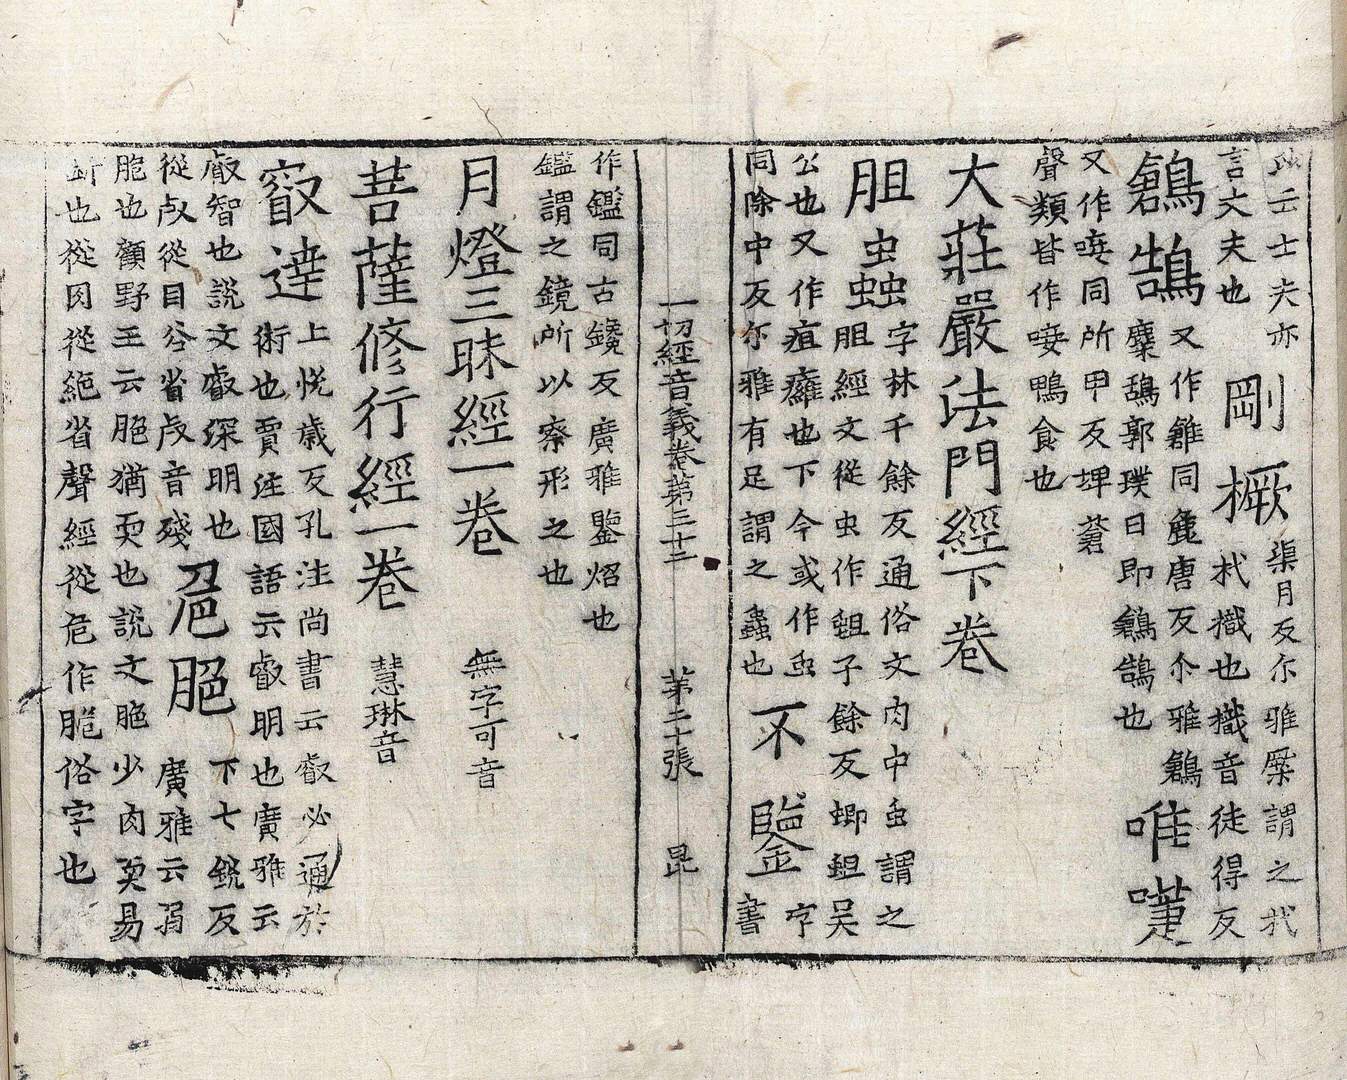 此云士夫亦
言丈夫也
剛橛
渠月反尓雅橜謂之杙
杙樴也樴音徒得反
鶬鵠
又作雒同麁唐反尒雅鶬
麋鴰郭璞曰即鶬鵠也
唯
又作啑同所甲反埤蒼
聲類皆作唼鴨食也
大莊嚴法門經下卷
胆蟲
字林千餘反通俗文肉中虫謂之
胆經文從虫作蛆子餘反蝍蛆吳
公也又作疽癰也下今或作虫
同除中反尓雅有足謂之蟲也
不鑒
字
書
一切經音義卷第三十二 第二十張 昆
作鑑同古鑱反廣雅鑒炤也
鑑謂之鏡所以察形之也
月燈三昧經一卷 無字可音
菩薩修行經一卷 慧琳音
叡達
上悅歲反孔注尚書云叡必通於
術也賈注國語云叡明也廣雅云
叡智也說文叡深明也
從𣦼從目谷省𣦼音殘
脃
下七銳反
廣雅云弱
脃也顧野王云脃猶耎也說文脃少肉耎易
斷也從肉從絕省聲經從危作脆俗字也